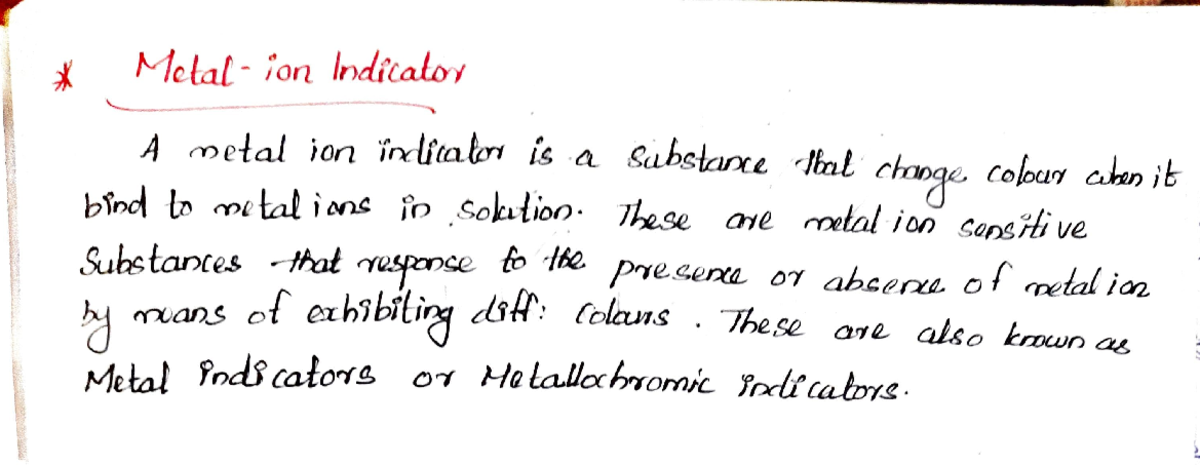 * Metal-ion Indicator
A metal ion indicator is a substance that change colour when it
bind to metal ions in solution. These are metal ion sensitive
Substances that response to the presence or absence of metal ion
by means of exhibiting diff: colours. These are also known as
Metal indicators or Metallochromic indicators.